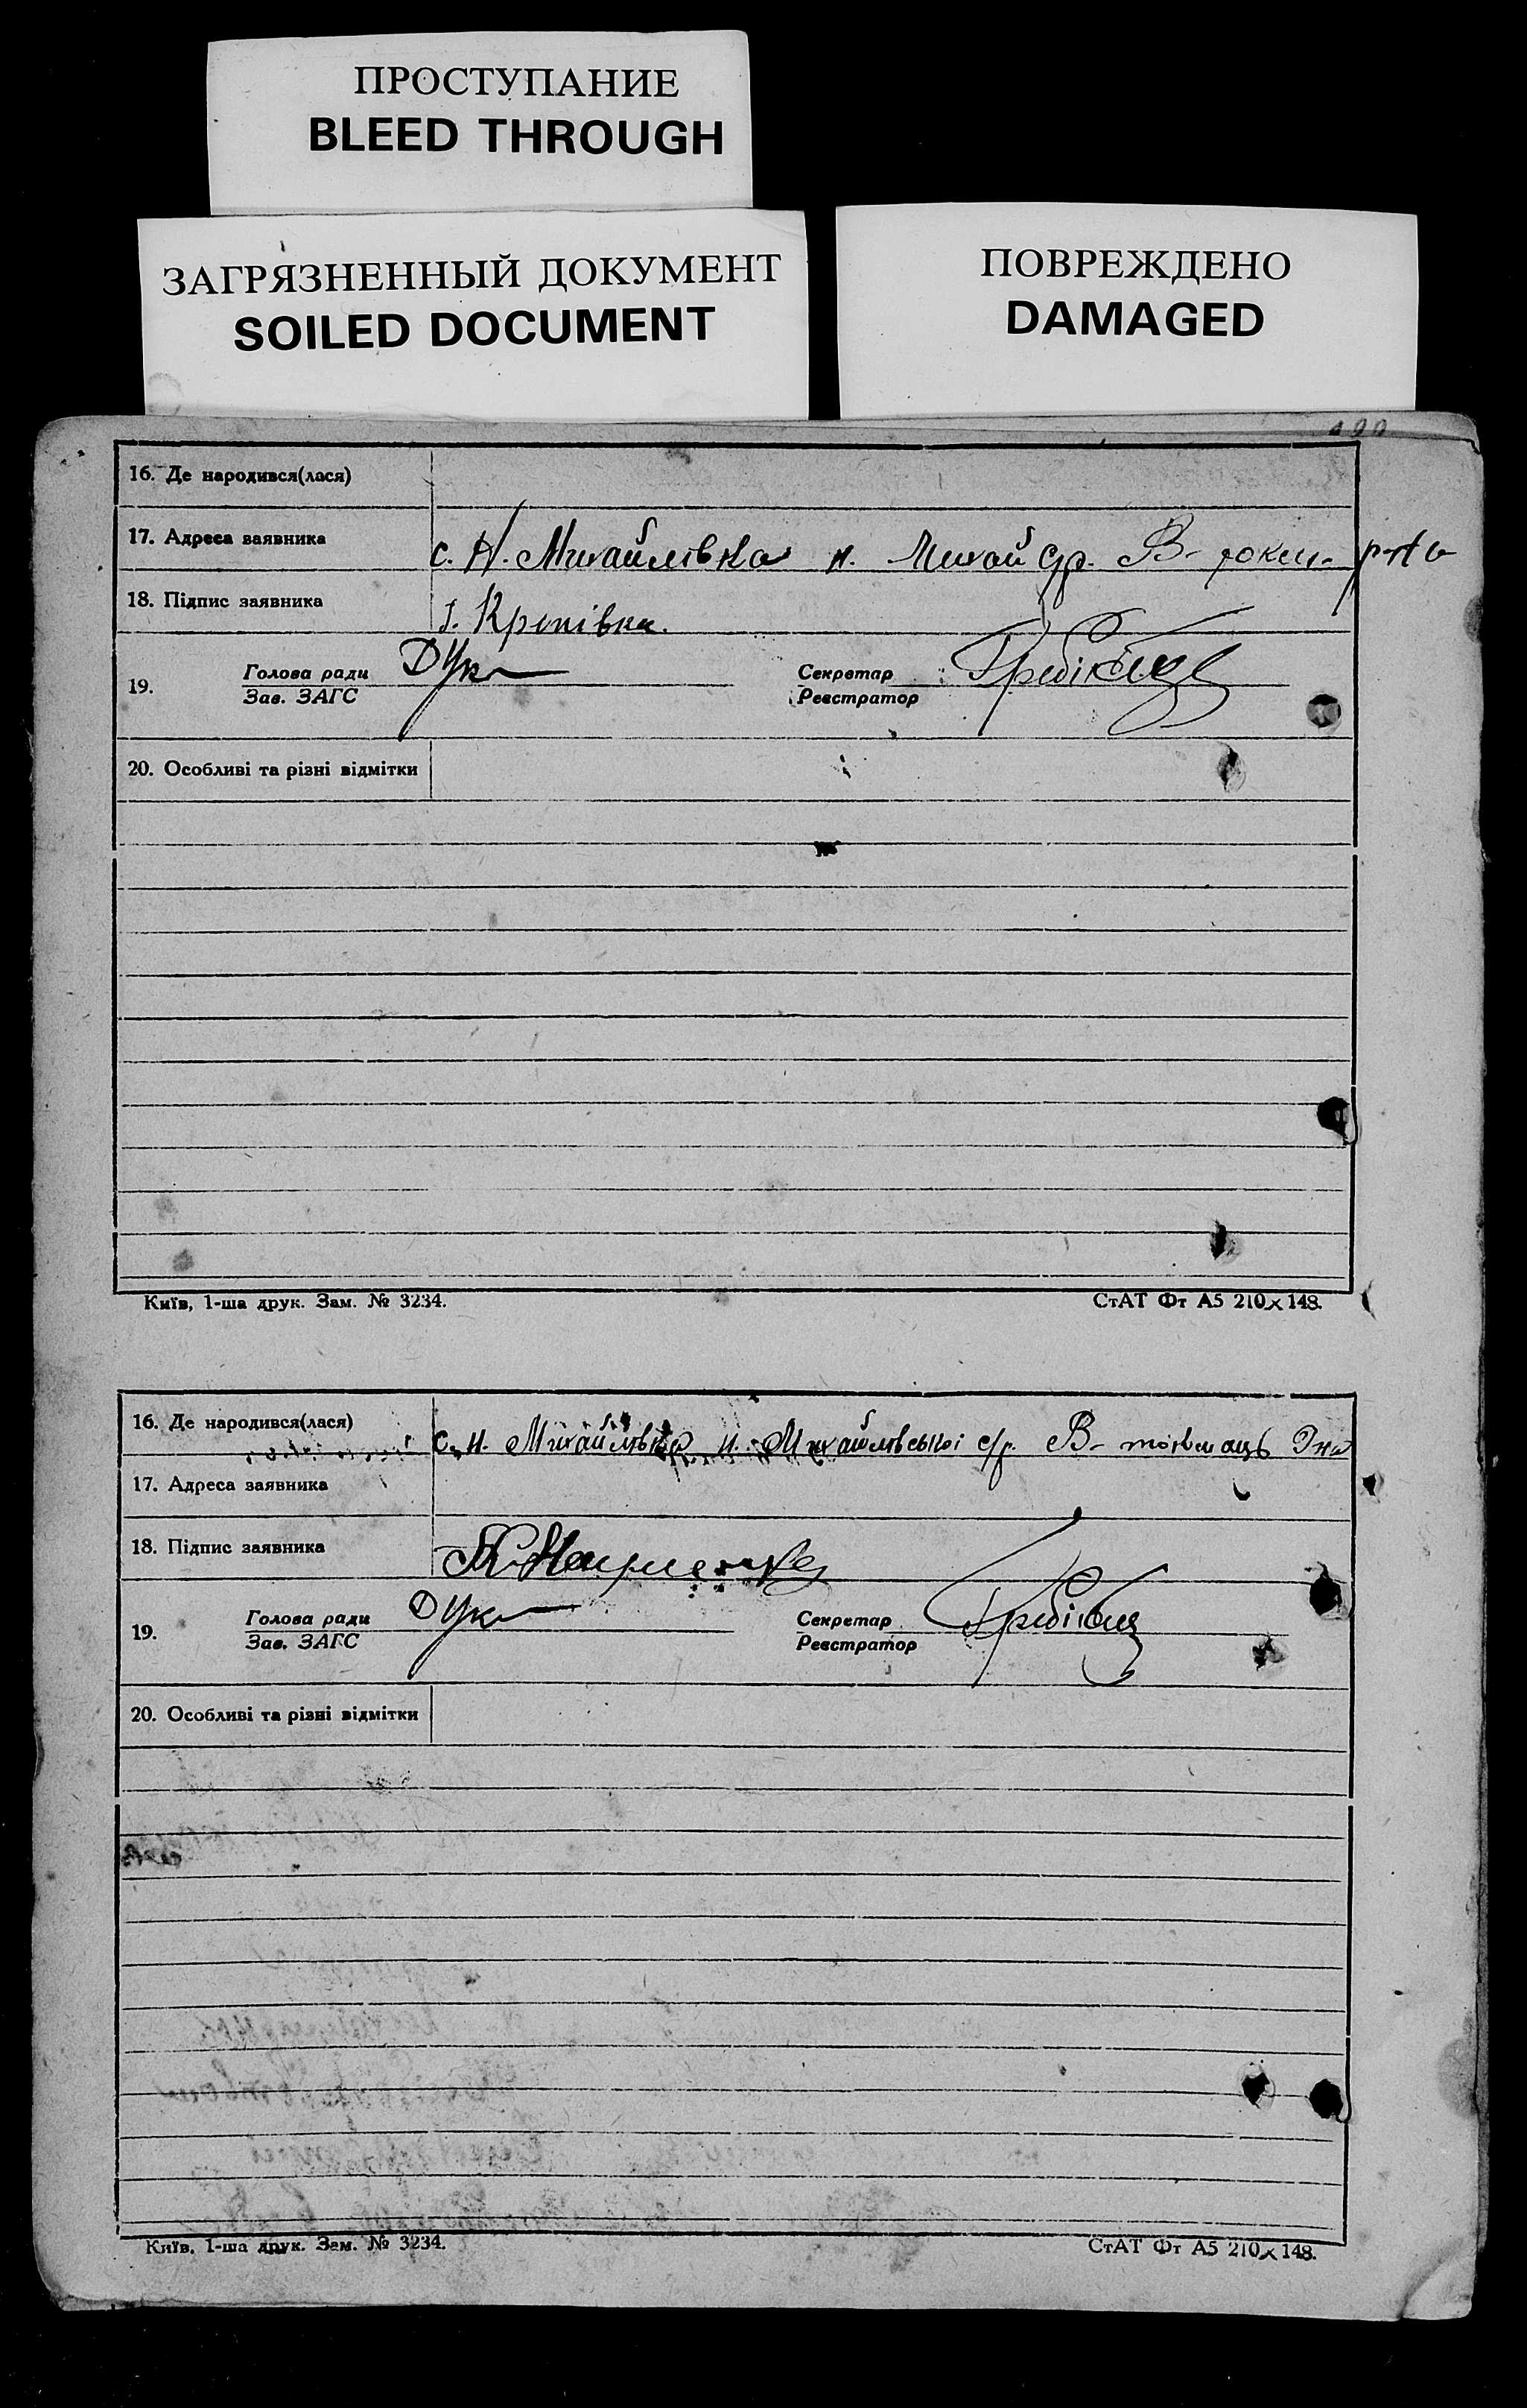 ПРОСТУПАНИЕ
BLEED THROUGH
ЗАГРЯЗНЕННЫЙ ДОКУМЕНТ
SOILED DOCUMENT
ПОВРЕЖДЕНО
DAMAGED
16. Де народився(лася)
17. Адреса заявника с. Н. Михайлівка н. Михай с/р. В-
18. Підпис заявника
19. Голова ради Секретар
Зав. ЗАГС Реєстратор
20. Особливі та різні відмітки
Київ, 1-ша друк. Зам. № 3234. СтАТ Фт А5 210х148.
16. Де народився(лася) с. Н. Михайлівка Н. Михайлівської с/р. В-
17. Адреса заявника
18. Підпис заявника
19. Голова ради Секретар
Зав. ЗАГС Реєстратор
20. Особливі та різні відмітки
Київ, 1-ша друк. Зам. № 3234. СтАТ Фт А5 210х148.